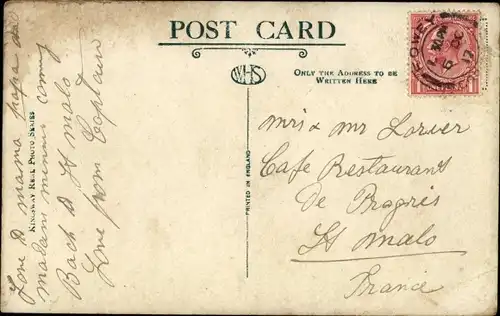 POST CARD
WHS
ONLY THE ADDRESS TO BE
WRITTEN HERE
KINGSWAY REAL PHOTO SERIES
PRINTED IN ENGLAND
FOWEY
Love to mama papa
malam coming
Back to St malo
Love from Captain
mrs & mr Lorier
Cafe Restaurant
De
St malo
France